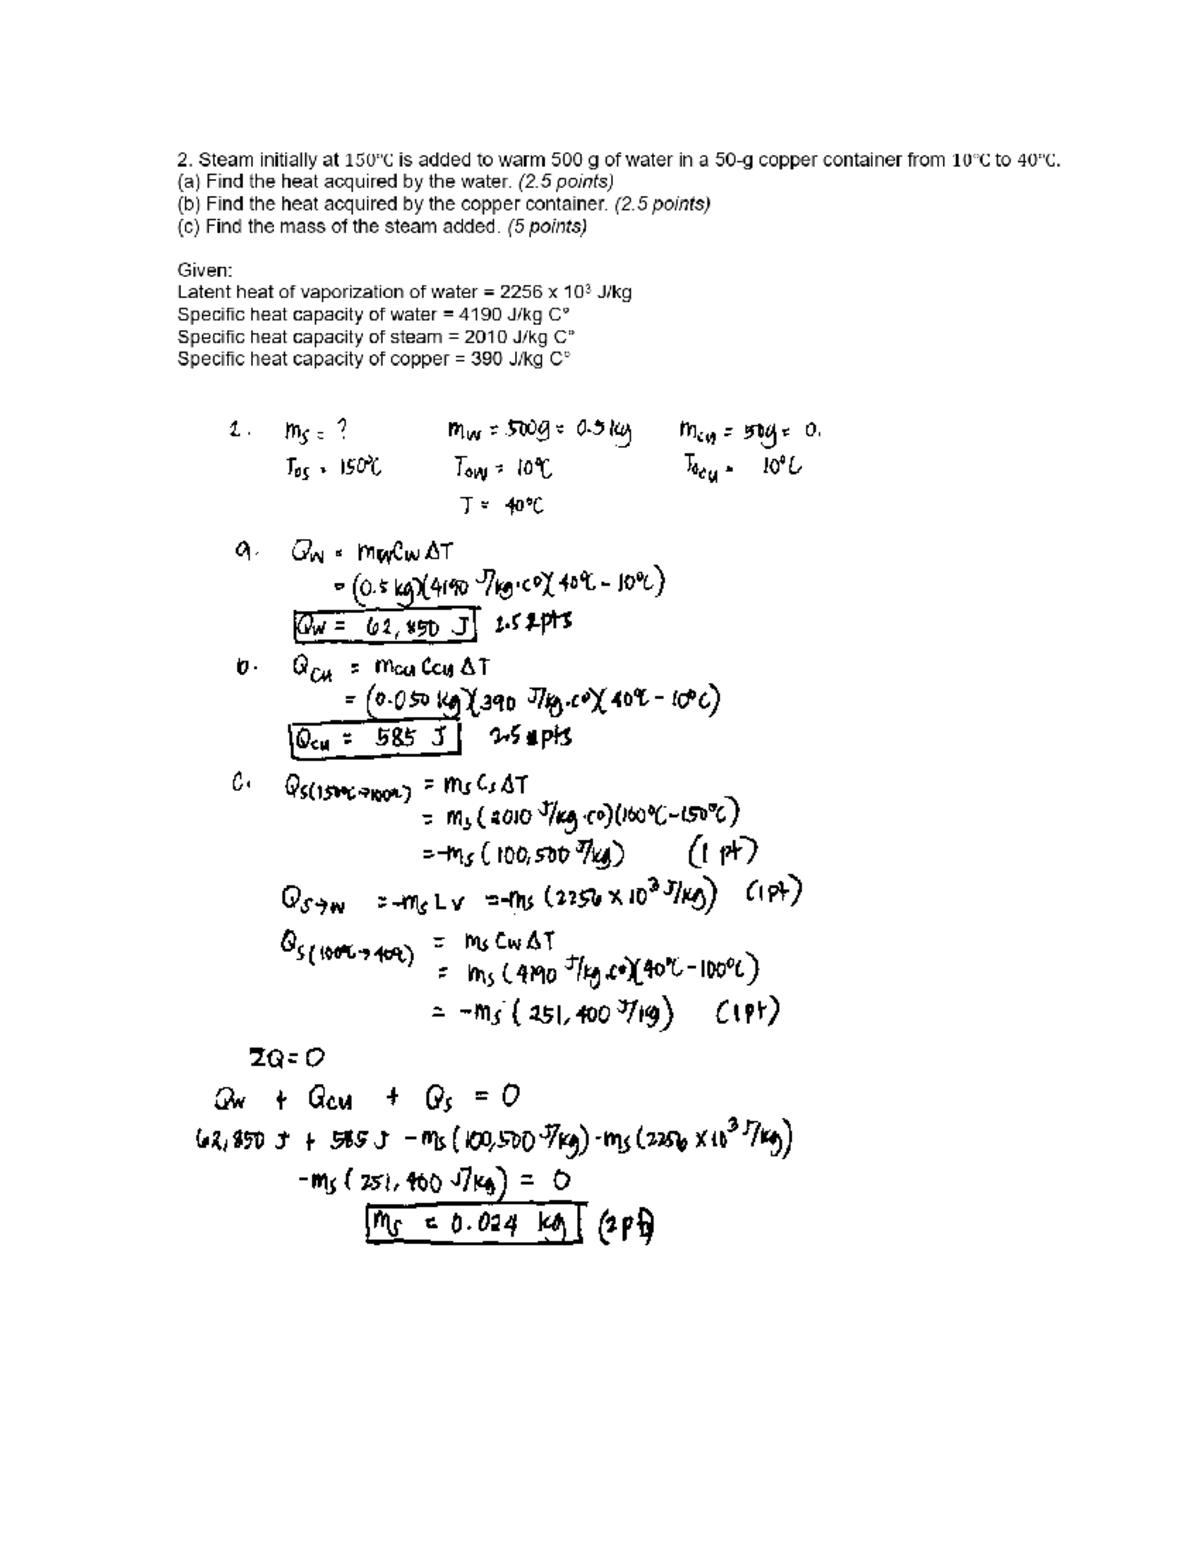 2. Steam initially at 150°C is added to warm 500 g of water in a 50-g copper container from 10°C to 40°C.
(a) Find the heat acquired by the water. (2.5 points)
(b) Find the heat acquired by the copper container. (2.5 points)
(c) Find the mass of the steam added. (5 points)
Given:
Latent heat of vaporization of water = 2256 x 10³ J/kg
Specific heat capacity of water = 4190 J/kg C°
Specific heat capacity of steam = 2010 J/kg C°
Specific heat capacity of copper = 390 J/kg C°
2. ms = ? mw = 500g = 0.5 kg mcu = 50g = 0.
Tos = 150°C Tow = 10°C Tocu = 10°C
T = 40°C
a. Qw = mwCw ΔT
= (0.5 kg)(4190 J/kg·C°)(40°C - 10°C)
Qw = 62,850 J 2.5 pts
b. Qcu = mcu Ccu ΔT
= (0.050 kg)(390 J/kg·C°)(40°C - 10°C)
Qcu = 585 J 2.5 pts
c. Qs(150°C→100°C) = ms Cs ΔT
= ms (2010 J/kg·C°)(100°C-150°C)
=-ms (100,500 J/kg) (1 pt)
Qs→w =-ms Lv =-ms (2256 x 10³ J/kg) (1pt)
Qs(100°C→40°C) = ms Cw ΔT
= ms (4190 J/kg·C°)(40°C-100°C)
= -ms (251,400 J/kg) (1pt)
ΣQ = 0
Qw + Qcu + Qs = 0
62,850 J + 585 J - ms (100,500 J/kg) - ms (2256 x 10³ J/kg)
-ms (251,400 J/kg) = 0
ms = 0.024 kg (2pt)